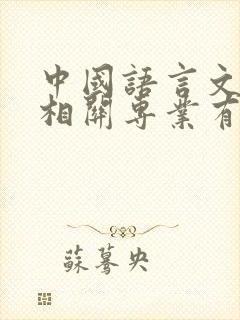 中國語言文
相關專業有
蘇驀央